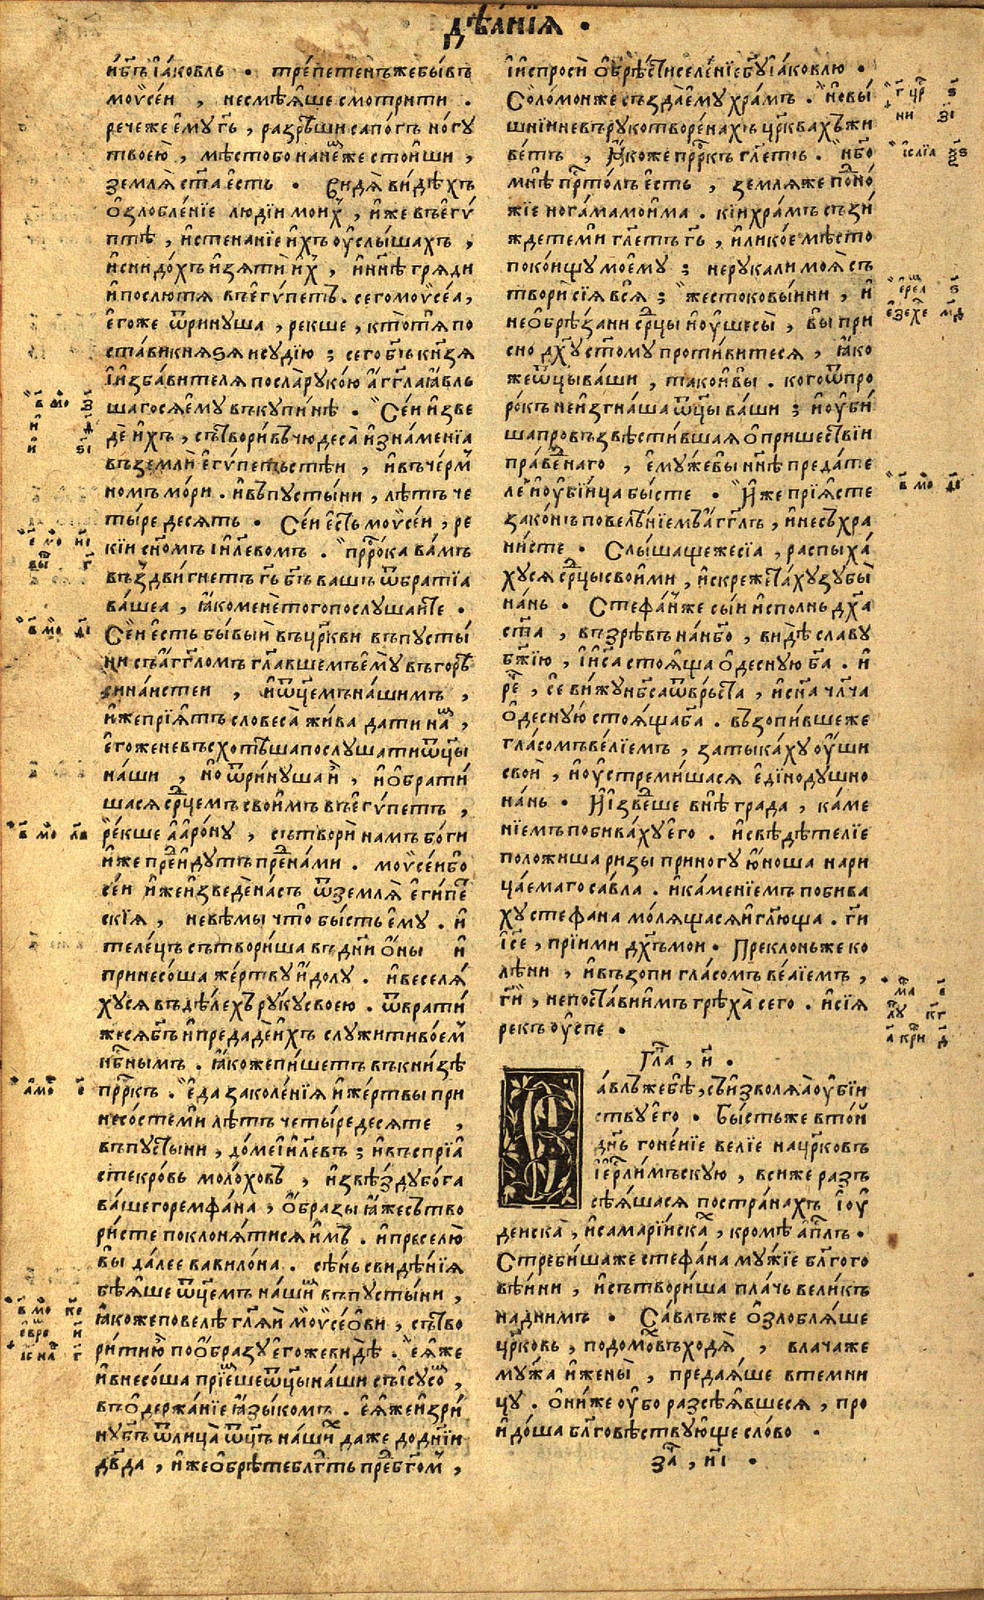 дѣа́нїѧ .
и҆ бг҃ъ і҆а́ковль . тре́петенъ же бы́въ
моѵ̈се́и , не смѣѧ́ше смотрити .
рече же є҆му гь҃ , разрѣши сапо́гъ но́гу
твоею̀ , мѣсто бо на не́мже стои́ши ,
землѧ̀ ст҃а е́сть . видѧ̀ ви́дѣхъ
ѡ҆злобле́нїе людїи мои́х , и҆́же въ є҆гѵ́
птѣ , и҆ стена́нїе и҆́хъ оу҆слы́шахъ ,
и҆ снидо́хъ и҆зѧ́ти и҆́х , и҆ нн҃ѣ грѧди
и҆ послю́ тѧ въ є҆гѵ́петъ . сего моѵ̈се́а ,
є҆го́же ѿри́нуша , рекше , кто́ тѧ по
ста́ви кнѧѕѧ и҆ судїю̀ ; сего бг҃ъ кн҃зѧ
і҆ и҆зба́вителѧ посла̀ руко́ю а҆́гг҃ла ꙗ҆́вль
шагосѧ є҆му въ купинѣ̀ . Се́и и҆зве
дѐ и҆́хъ , сътвори́въ чюдеса̀ и҆ зна́менїа
въ землѝ є҆гѵ́петьстѣи , и҆ въ че́рм
номъ мо́ри . и҆ въ пусты́ни , лѣтъ че
ты́редесѧть . Се́и е҆́сть моѵ̈се́и , ре
кїи сн҃омъ і҆и҃левомъ . прⷪ҇рка ва́мъ
въздви́гнетъ гь҃ бг҃ъ вашъ ѿ бра́тїа
ва́шеа , ꙗ҆́ко менѐ того послу́шаите .
Се́и е҆́сть бы́выи въ цр҃кви въ пусты́
ни съ а҆́гг҃ломъ гл҃авшемъ є҆му̀ въ горѣ̀
сина́истеи , и҆ ѿц҃емъ на́шимъ ,
и҆́же прїѧ́тъ словеса̀ жи́ва дати на́м ,
є҆го́же не въсхотѣ́ша послу́шати ѿц҃ы
на́ши , но̀ ѿри́нуша и҆̀ , и҆ ѡ҆брати́
шасѧ ср҃цемъ свои́мъ въ є҆гѵ́петъ ,
ре́кше а҆аро́ну , сътворѝ намъ бо́ги
и҆́же пре́идутъ пре́д на́ми . моѵ̈се́и бо
се́и и҆́же и҆зведѐ на́съ ѿ землѧ̀ є҆ги́пет
скїѧ , не вѣ́мы что̀ бы́сть є҆му . и҆
теле́цъ сътвори́ша въ дн҃и ѻ҆́ны и҆
принесо́ша же́ртву и҆́долу . и҆ веселѧ́
хусѧ въ дѣ́лехъ ру́ку своею . ѿврати́
же сѧ бг҃ъ и҆ предадѐ и҆́хъ служи́ти во́ем
нбⷭ҇нымъ . ꙗ҆́коже пи́шетъ въ кни́зѣ
прⷪ҇ркъ . е҆да̀ заколе́нїѧ и҆ же́ртвы при
несо́сте ми лѣ́тъ четы́редесѧте ,
въ пусты́ни , до́ме і҆и҃левъ ; и҆ въспрїѧ́
сте кро́въ моло́ховъ , и҆ звѣзду̀ бо́га
ва́шего ремфа́на , ѡ҆́бразы ꙗ҆́же сътво
ри́сте поклонѧ́тисѧ и҆́мъ . и҆ преселю̀
вы да́лее вавило́на . сѣ́нь свидѣ́нїѧ
бѣѧ́ше ѿц҃емъ на́шим въ пусты́ни ,
ꙗ҆́коже повелѣ̀ гл҃ѧи моѵ̈се́ѡви , сътво
рити ю҆̀ по ѡ҆́бразу є҆го́же ви́дѣ . е҆ѧ́же
и҆ внесо́ша прїе́мше ѿц҃ы на́ши съ і҆сусом ,
въ ѻ҆держа́нїе ꙗ҆зы́комъ . е҆ѧ́же и҆зри́
ну бг҃ъ ѿ лица̀ ѿц҃ъ на́ших даже до дн҃іи
дв҃да , и҆́же ѡ҆брѣ́те блг҃ть пред бг҃ом ,
і҆ и҆спросѝ ѡ҆брѣстѝ селе́нїе бг҃у і҆а́ковлю .
Соломо́нже създа̀ є҆му храмъ . но̀ вы
шнїи не въ рукотворе́нахъ цр҃квахъ жи
ве́тъ , ꙗ҆́коже прⷪ҇ркъ гл҃етъ . нб҃о
мнѣ̀ прⷭ҇то́лъ е҆́сть , землѧ́же подно́
жїе нога́ма мои́ма . кі́и храмъ съзи́
ждете мѝ гл҃етъ гь҃ , и҆лѝ кое мѣ́сто
поко́ищу моему̀ ; не рука́ ли моѧ̀ съ
творѝ сїѧ̀ всѧ̀ ; жестоковы́инии , и҆
неѡ҆брѣ́зани ср҃цы и҆ оу҆шесы̀ , вы при
сно дх҃у ст҃ому проти́витесѧ , ꙗ҆́ко
же ѿц҃ы ва́ши , та́ко и҆ вы̀ . кого ѿ про
ро́къ не и҆згна́ша ѿц҃ы ва́ши ; и҆ оу҆би́
ша провъзвѣсти́вшаѧ ѻ҆ прише́ствїи
пра́веднаго , є҆му́же вы̀ нн҃ѣ преда́те
ле и҆ оу҆бі́ица бы́сте . и҆́же прїѧ́сте
зако́нъ повелѣ́нїемъ а҆́гг҃лъ , и҆ не съхра
ни́сте . Слы́шащеже сїа , распыха́
хусѧ ср҃цы свои́ми , и҆ скрежета́ху зу́бы
на́нь . Стефа́нже сы́и и҆спо́лнь дх҃а
ст҃а , възрѣ́въ на нб҃о , ви́дѣ сла́ву
бж҃їю , і҆ і҆са̀ стоѧ́ща ѻ҆десну́ю бг҃а . и҆
ре́ч , сѐ ви́жу нб҃са ѿве́рста , и҆ сн҃а чл҃ча
ѻ҆десну́ю стоѧ́ща бг҃а . възопи́вшеже
гла́сомъ ве́лїемъ , затыка́ху оу҆́ши
своѝ , и҆ оу҆стреми́шасѧ е҆динодушно
на́нь . И҆ и҆зве́дше внѣ̀ града , ка́ме
нїемъ побива́ху є҆го̀ . и҆ свѣдѣтелїе
положи́ша ри́зы при ногу̀ ю҆́ноша нари
ца́емаго са́вла . и҆ ка́менїемъ побива
ху стефа́на мо́лѧщасѧ и҆ гл҃юща . ги҃
і҆се , прїими дх҃ъ мо́и . Прекло́ньже ко
лѣ́ни , и҆ възопѝ гла́сомъ ве́лїемъ ,
ги҃ , не поста́ви и҆́мъ грѣха̀ сего . и҆ сїѧ̀
рекъ оу҆́спе .
Гла҃ , и҃ .
авлъ же бѣ̀ , съизволѧ́ѧ оу҆бїи
ству є҆го̀ . Бы́стьже в то́и
дн҃ь гоне́нїе ве́лїе на цр҃ковъ
і҆ер҃лимъскую , вси́же разъ
сѣѧ́шасѧ по стра́нахъ і҆оу
деиска , и҆ самарїи́ска , кромѣ̀ а҆пⷭ҇лъ .
С треби́шаже стефа́на му́жїе блг҃ого
вѣ́ини , и҆ сътвори́ша пла́чь вели́къ
над ни́мъ . Са́влъже ѡ҆злоблѧ́ше
цр҃ковь , по домо́въ ходѧ̀ , влачаже
му́жа и҆ жены̀ , предаѧ́ше в темни
цу . ѻ҆ни́же оу҆́бо разсѣѧ́вшесѧ , про
и҆до́ша блг҃овѣствую́ще сло́во .
за҃ , и҃і .